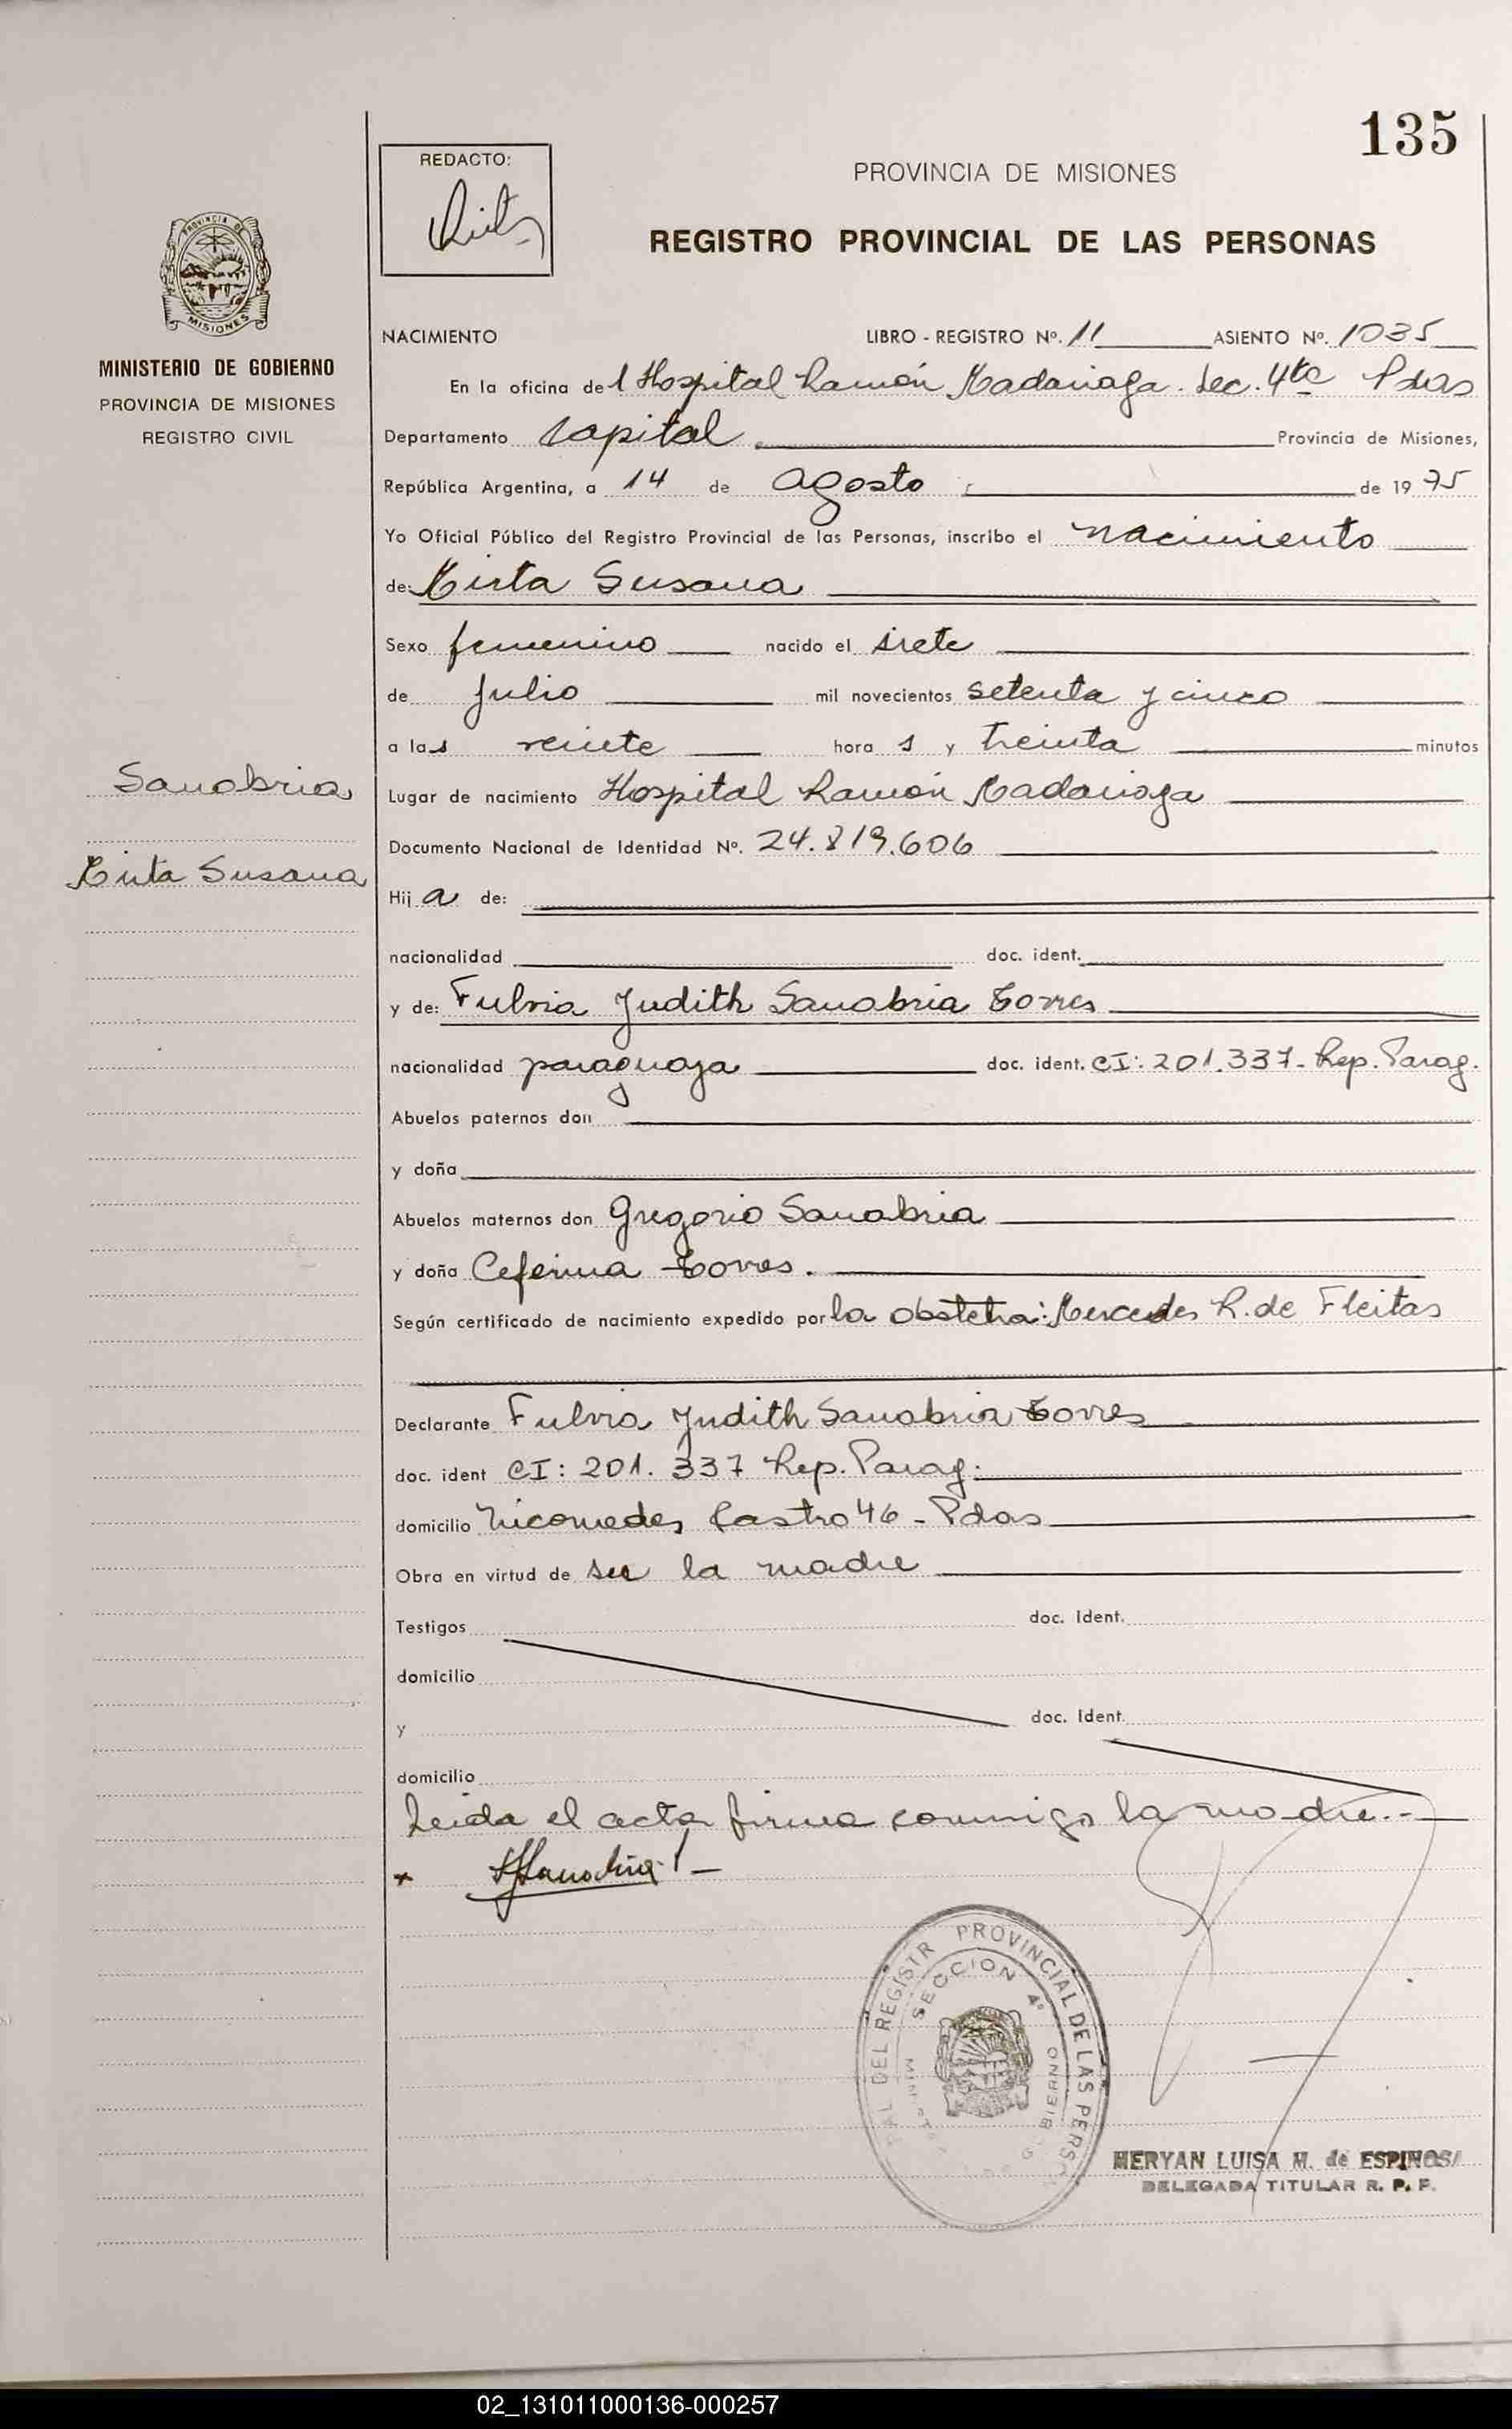 135
REDACTO:
PROVINCIA DE MISIONES
REGISTRO PROVINCIAL DE LAS PERSONAS
PROVINCIA DE
MISIONES
MINISTERIO DE GOBIERNO
PROVINCIA DE MISIONES
REGISTRO CIVIL
NACIMIENTO LIBRO - REGISTRO Nº. 11 ASIENTO Nº. 1035
En la oficina del Hospital Ramón Madariaga. Sec. 4ta Pdas
Departamento Capital Provincia de Misiones,
República Argentina, a 14 de agosto de 1975
Yo Oficial Público del Registro Provincial de las Personas, inscribo el nacimiento
de: Mirta Susana
Sexo femenino nacido el siete
de julio mil novecientos setenta y cinco
a las veinte horas y treinta minutos
Sanabria
Mirta Susana
Lugar de nacimiento Hospital Ramón Madariaga
Documento Nacional de Identidad Nº. 24.819.606
Hija de:
nacionalidad doc. ident.
y de: Fulvia Judith Sanabria Torres
nacionalidad paraguaya doc. ident. CI: 201.337- Rep. Parag.
Abuelos paternos don
y doña
Abuelos maternos don Gregorio Sanabria
y doña Ceferina Torres.
Según certificado de nacimiento expedido por la obstetra: Mercedes R. de Fleitas
Declarante Fulvia Judith Sanabria Torres
doc. ident CI: 201.337 Rep. Parag.
domicilio Nicomedes Castro 46 - Pdas
Obra en virtud de ser la madre
Testigos doc. Ident.
domicilio
y doc. Ident.
domicilio
Leida el acta firma conmigo la madre.-
PROVINCIAL DE LAS PERS
SECCION 4º
MERYAN LUISA M. de ESPINOS
DELEGADA TITULAR R. P. P.
02_131011000136-000257